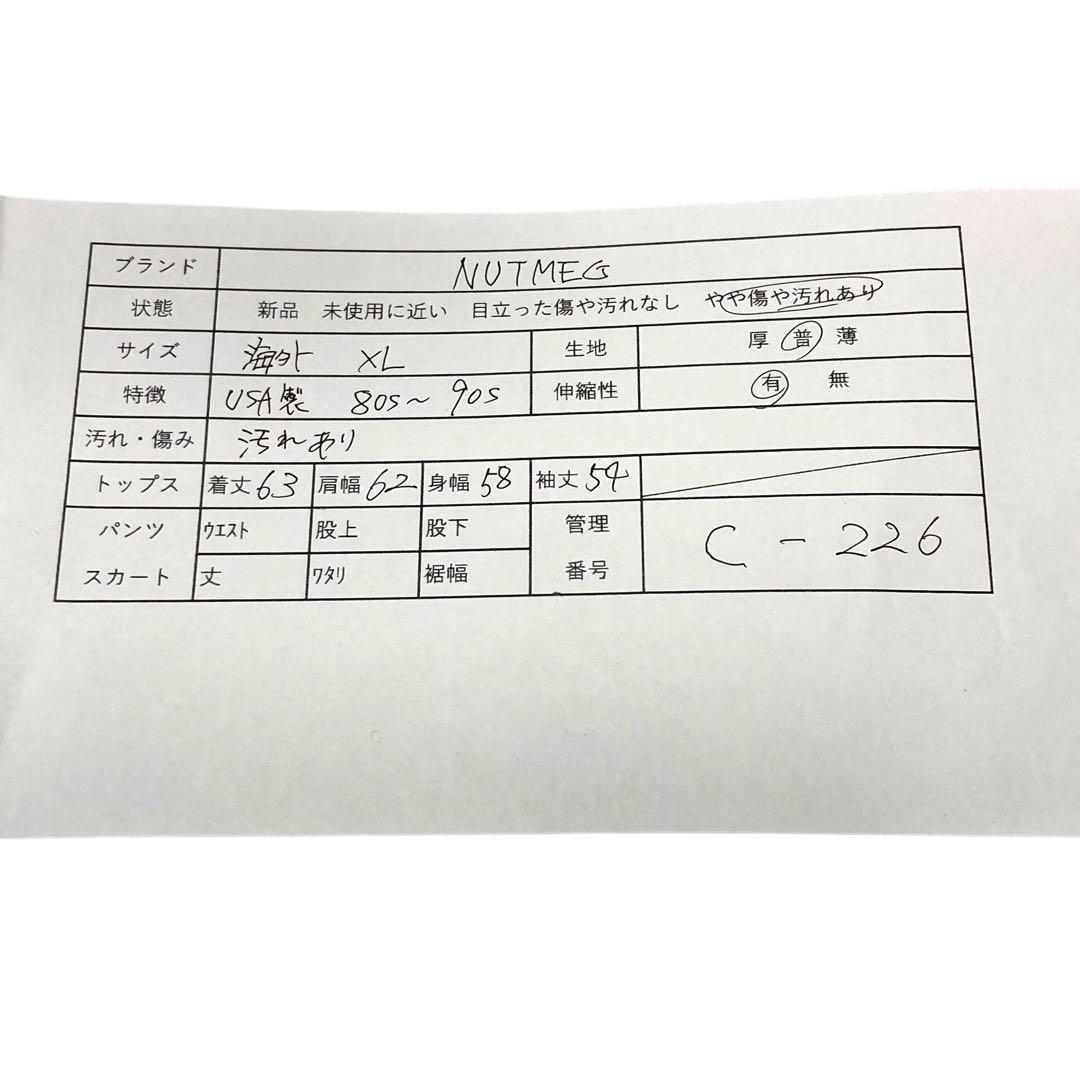 ブランド NUTMEG
状態 新品 未使用に近い 目立った傷や汚れなし やや傷や汚れあり
サイズ 海外 XL 生地 厚 普 薄
特徴 USA製 80s〜90s 伸縮性 有 無
汚れ・傷み 汚れあり
トップス 着丈 63 肩幅 62 身幅 58 袖丈 54
パンツ ウエスト 股上 股下 管理 C - 226
スカート 丈 ワタリ 裾幅 番号